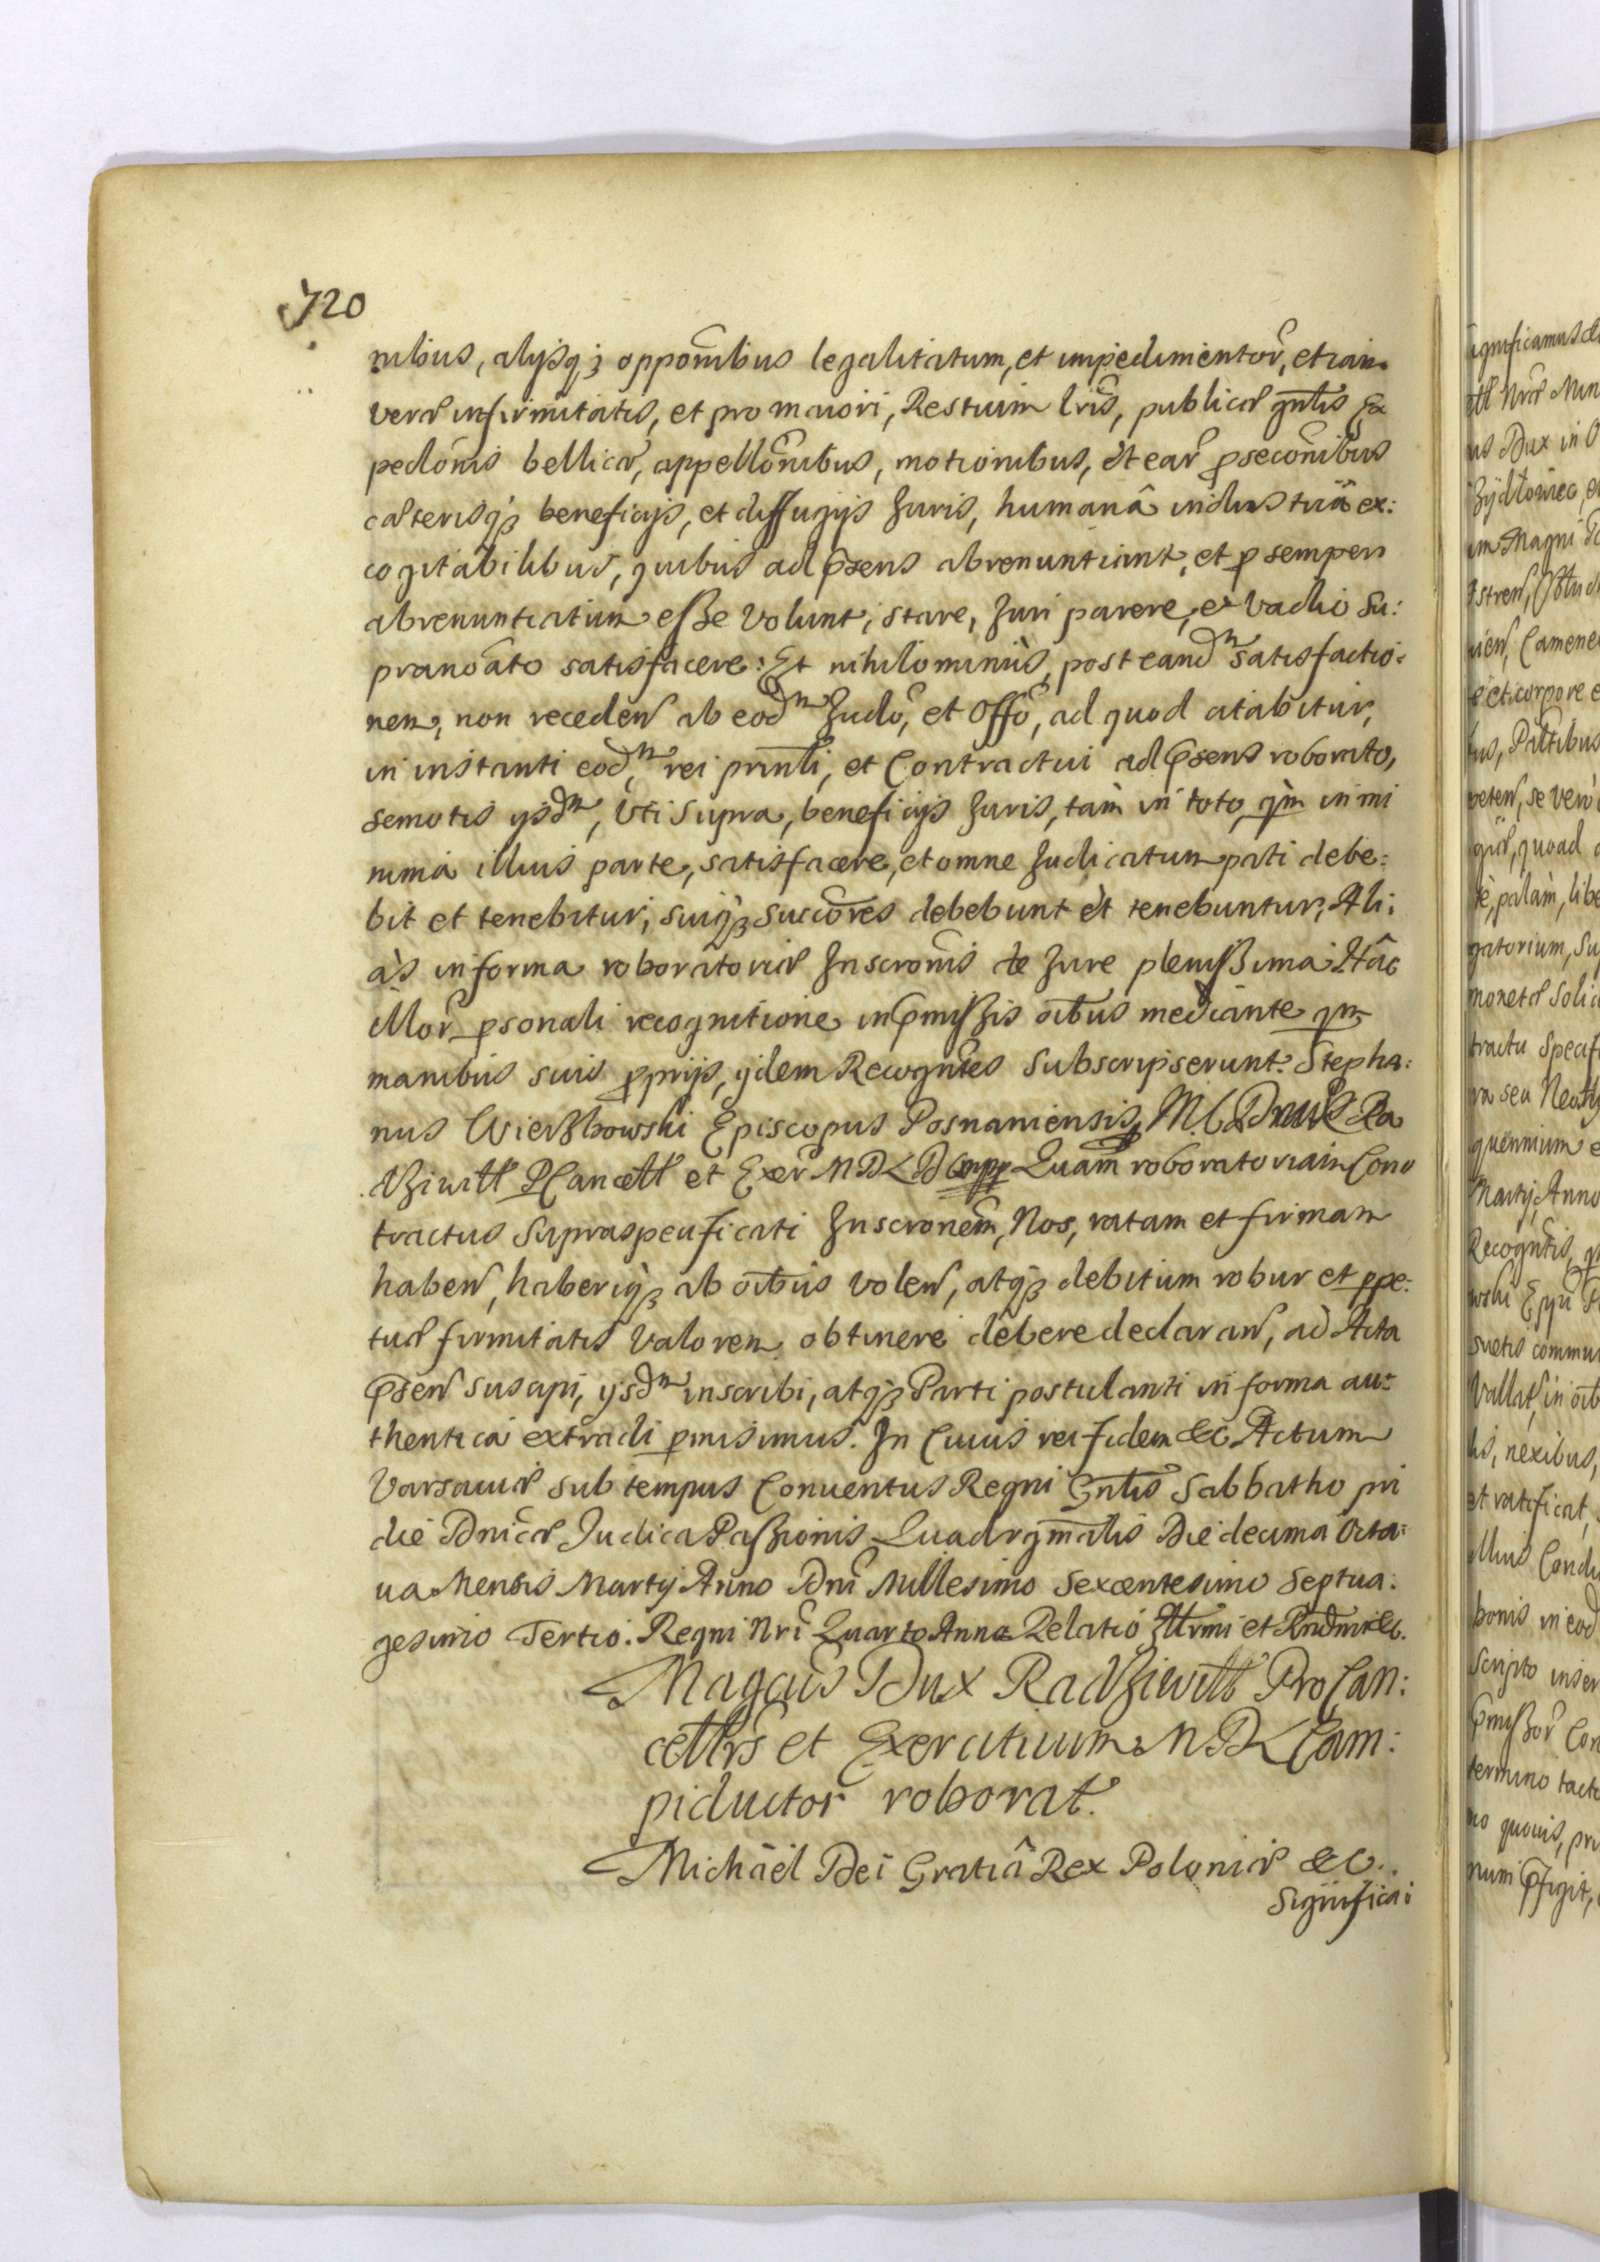 720
nibus, alÿsq₃ oppon̄ibus legalitatum, et impedimentor̄, etiam
veræ infirmitatis, et pro maiori, Restium lrīs, publicæ gn̄lis Ex
pedōnis bellicæ, appellōnibus, motionibus, èt ear̄ ꝓsecōnibus
cæterisq₃ beneficijs, et diffugijs Juris, humanâ industriâ ex:
cogitabilibus, quibus ad p̄sens abrenuntiant, et ꝓ semper
abrenuntiatum eſse volunt, stare, Juri parere, et Vadio Su:
pranoāto satisfacere: Et nihilominùs, post eand̄m satisfactio:
nem, non receden̄ ab eod̄m Judō, et Offō, ad quod citabitur,
in instanti eod̄m rei prīnli, et Contractui ad p̄sens roborato,
semotis ÿsd̄m, Vti supra, beneficijs Juris, tàm in toto, qm̄ in mi
nima illius parte, satisfacere, et omne Judicatum pati debe:
bit et tenebitur, suiq₃ succōres debebunt èt tenebuntur, Ali:
às in forma roboratoriæ Inscrōnis de Jure pleniſsima. Hâc
illor̄ ꝑsonali recognitione in p̄miſsis oībus mediante qm̄
manibus suis ꝓprijs, ÿdem Recogn̄tes subscripserunt. Stepha:
nus Wierzbowski Episcopus Posnaniensis, M. C. Dux Ra
dziwiłł PCancełł et Exer̄ MDL DCmpp Quam roboratoriam Con
tractus supraspecificati Inscronem̄, Nos, ratam et firmam
haben̄, haberiq₃ ab oībus volen̄, atq₃ debitum robur et ppe:
tuæ firmitatis valorem obtinere debere declaran̄, ad Acta
p̄sen̄ suscipi, ÿsd̄m inscribi, atq₃ Parti postulanti in forma au:
thentica extradi ꝑmisimus. In Cuius rei fidem &c Actum
Varsauiæ sub tempus Conuentus Regni Gn̄lis Sabbatho pri
die Dnīcæ Judica Paſsionis Quadrgm̄alis Die decima Octa:
ua Mensis Martÿ Anno Dnī Millesimo Sexcentesimo Septua:
gesimo Tertio. Regni Nrī Quarto Anno Relatio Illrmi et Rndmi &c.
Magcūs Dux Radziwiłł ProCan:
cełłrs et Exercituum MDL Cam:
piductor roborat.
Michaël Deî Gratiâ Rex Poloniæ &c.
Significa: